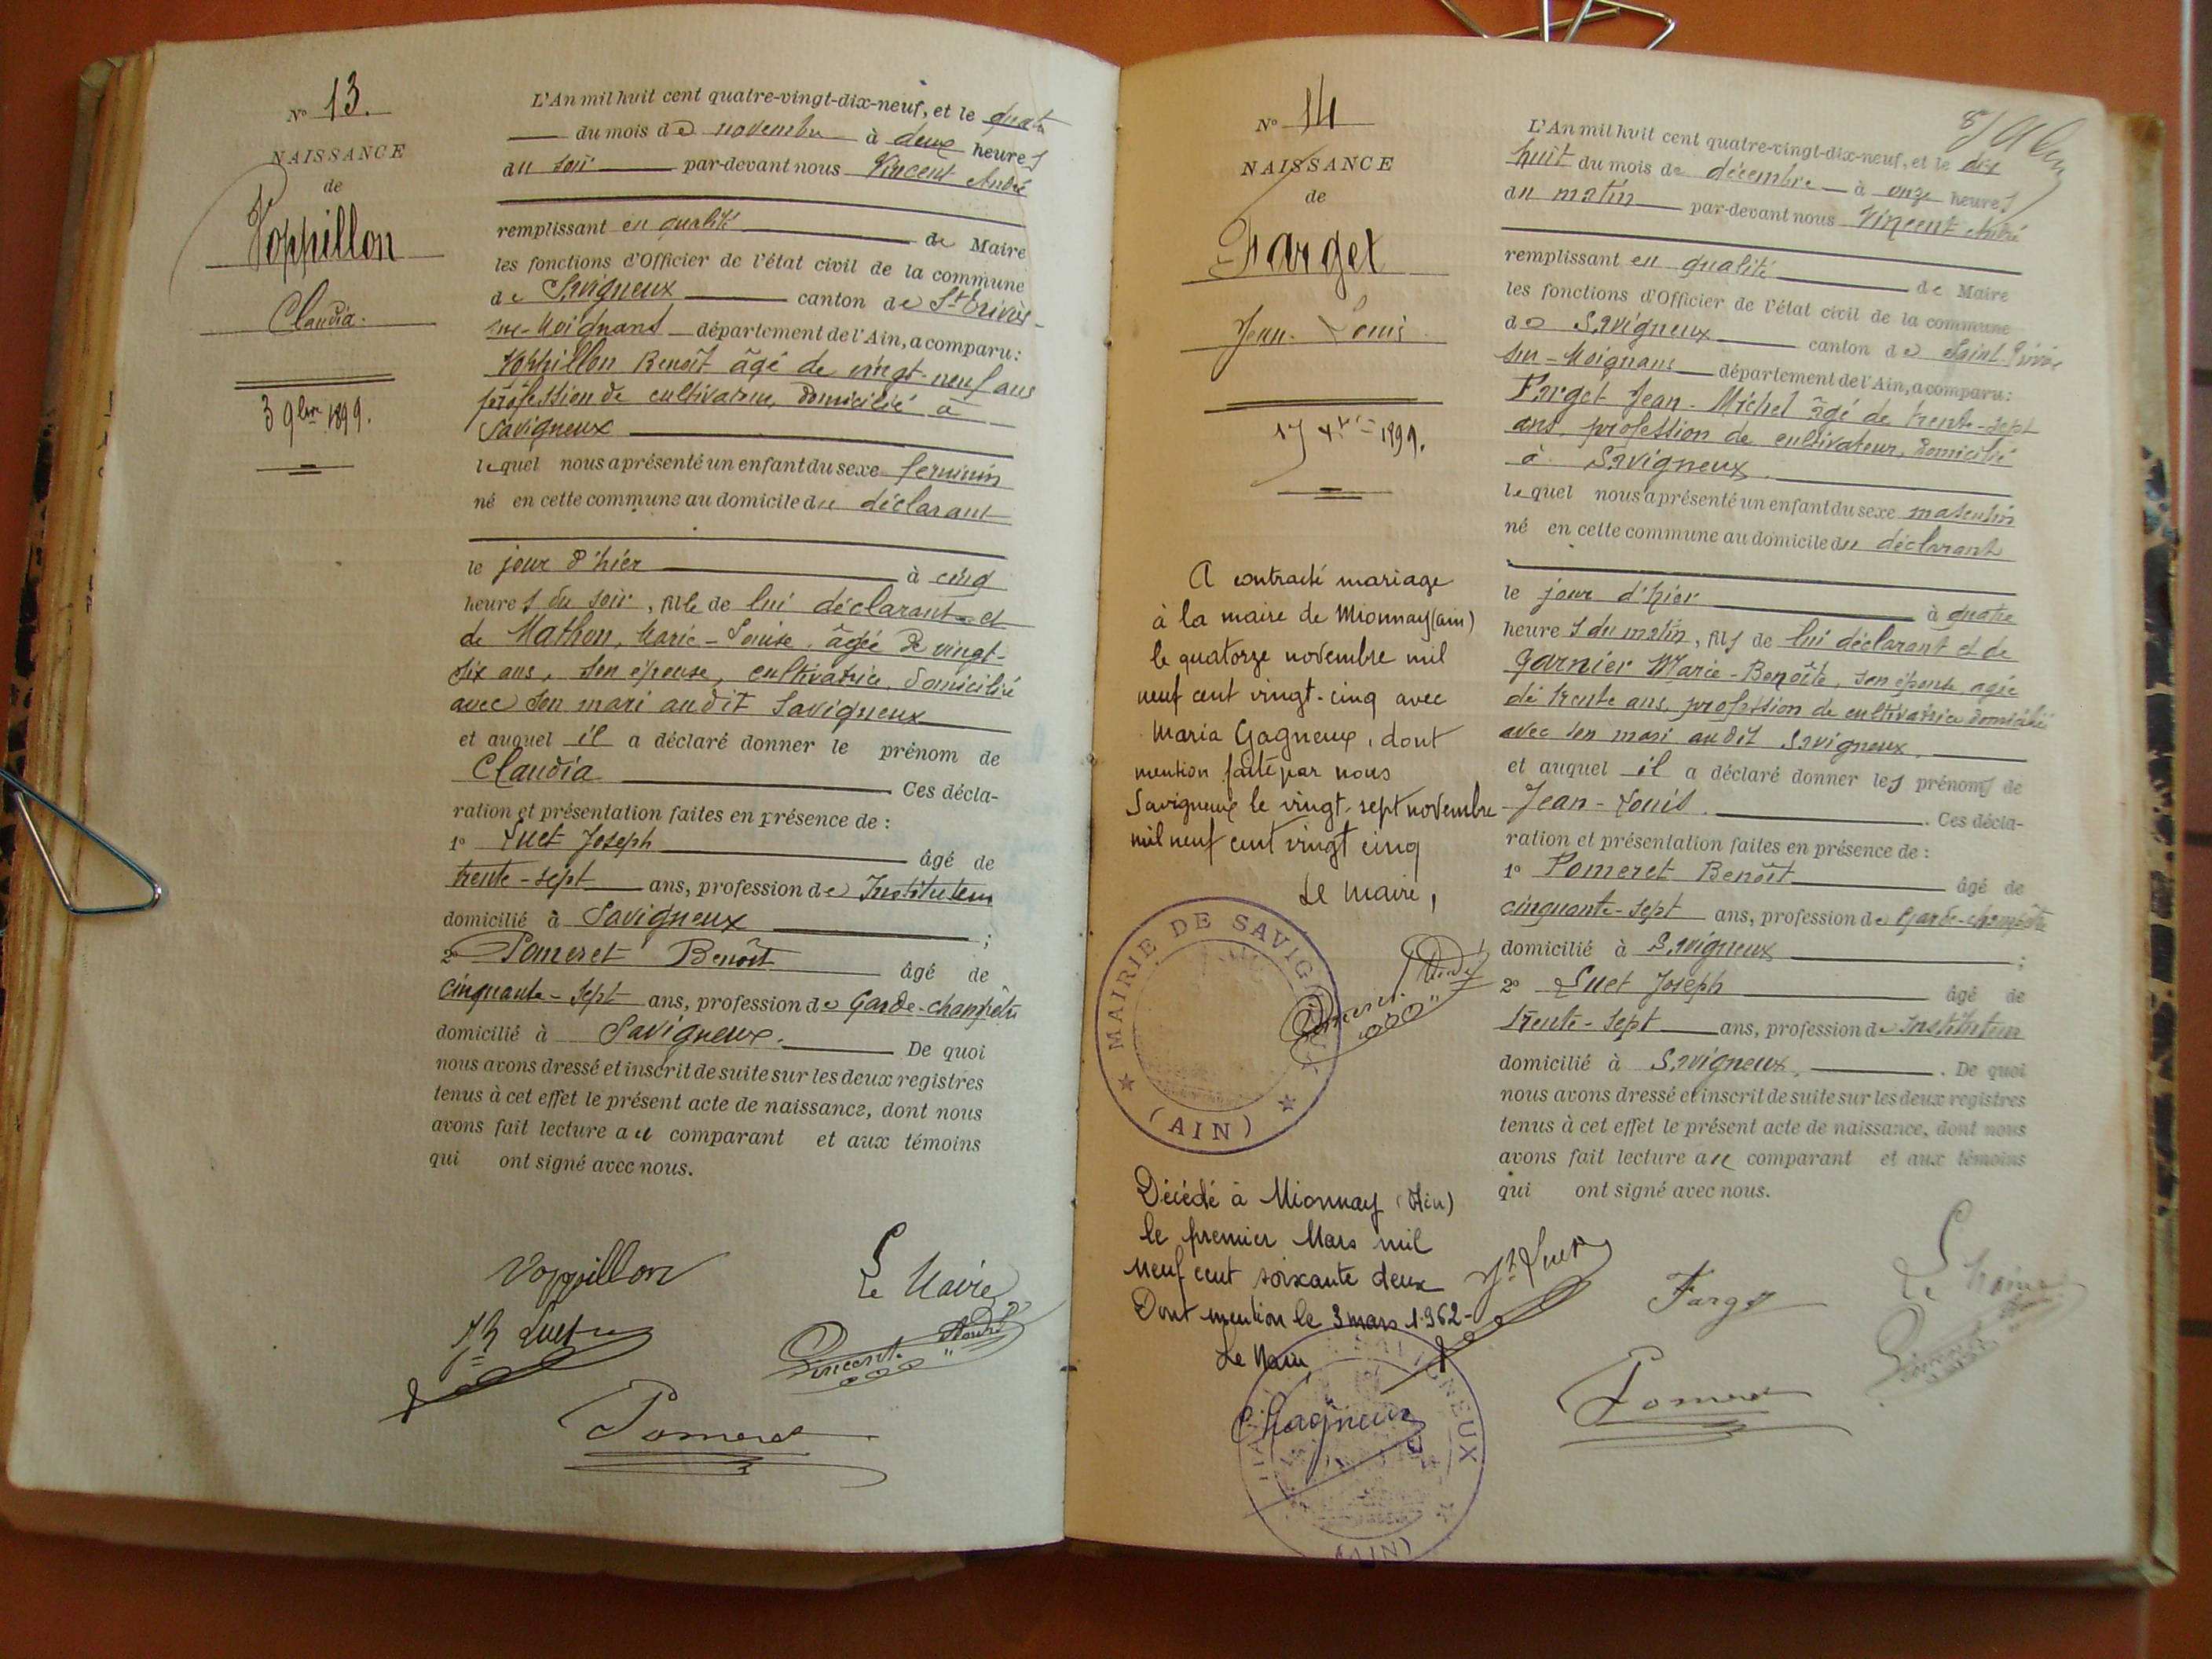 N° 13.
NAISSANCE
de
Voppillon
Claudia.
3 9bre 1899.
L'An mil huit cent quatre-vingt-dix-neuf, et le quatre
du mois de novembre à deux heures
du soir par-devant nous Vincent André
remplissant en qualité de Maire
les fonctions d'Officier de l'état civil de la commune
de Savigneux canton de St Trivier-
sur-Moignans département de l'Ain, a comparu:
Voppillon Benoît âgé de vingt-neuf ans
profession de cultivateur, domicilié à
Savigneux
lequel nous a présenté un enfant du sexe feminin
né en cette commune au domicile du déclarant
le jour d'hier à cinq
heures du soir, fille de lui déclarant et
de Mathon, Marie-Louise, âgée de vingt-
six ans, son épouse, cultivatrice, domiciliée
avec son mari audit Savigneux
et auquel il a déclaré donner le prénom de
Claudia Ces décla-
ration et présentation faites en présence de :
1° Luet Joseph âgé de
trente-sept ans, profession de Instituteur
domicilié à Savigneux ;
2° Pomeret Benoît âgé de
cinquante-sept ans, profession de Garde-champêtre
domicilié à Savigneux. De quoi
nous avons dressé et inscrit de suite sur les deux registres
tenus à cet effet le présent acte de naissance, dont nous
avons fait lecture au comparant et aux témoins
qui ont signé avec nous.
Voppillon
Le Maire
Jh Luet
Vincent André
Pomeret
N° 14
NAISSANCE
de
Farget
Jean-Louis
17 Xbre 1899.
A contracté mariage
à la maire de Mionnay (ain)
le quatorze novembre mil
neuf cent vingt-cinq avec
Maria Gagneux, dont
mention faite par nous
Savigneux le vingt-sept novembre
mil neuf cent vingt cinq
Le Maire,
MAIRIE DE SAVIGNEUX
(AIN)
Vincent André
Décédé à Mionnay (Ain)
le premier Mars mil
neuf cent soixante deux
Dont mention le 3 mars 1962-
Le Maire
Chagneux
SAVIGNEUX
(AIN)
L'An mil huit cent quatre-vingt-dix-neuf, et le dix
huit du mois de décembre à onze heures
du matin par-devant nous Vincent André
remplissant en qualité de Maire
les fonctions d'Officier de l'état civil de la commune
de Savigneux canton de Saint Trivier
sur-Moignans département de l'Ain, a comparu:
Farget Jean-Michel âgé de trente-sept
ans, profession de cultivateur, domicilié
à Savigneux.
lequel nous a présenté un enfant du sexe masculin
né en cette commune au domicile du déclarant
le jour d'hier à quatre
heures du matin, fils de lui déclarant et de
Garnier Marie-Benoîte, son épouse agée
de trente ans, profession de cultivatrice domiciliée
avec son mari audit Savigneux.
et auquel il a déclaré donner les prénoms de
Jean-Louis. Ces décla-
ration et présentation faites en présence de :
1° Pomeret Benoît âgé de
cinquante-sept ans, profession de Garde-champêtre
domicilié à Savigneux ;
2° Luet Joseph âgé de
trente-sept ans, profession de Instituteur
domicilié à Savigneux. De quoi
nous avons dressé et inscrit de suite sur les deux registres
tenus à cet effet le présent acte de naissance, dont nous
avons fait lecture au comparant et aux témoins
qui ont signé avec nous.
Jh Luet
Farget
Le Maire
Vincent André
Pomeret